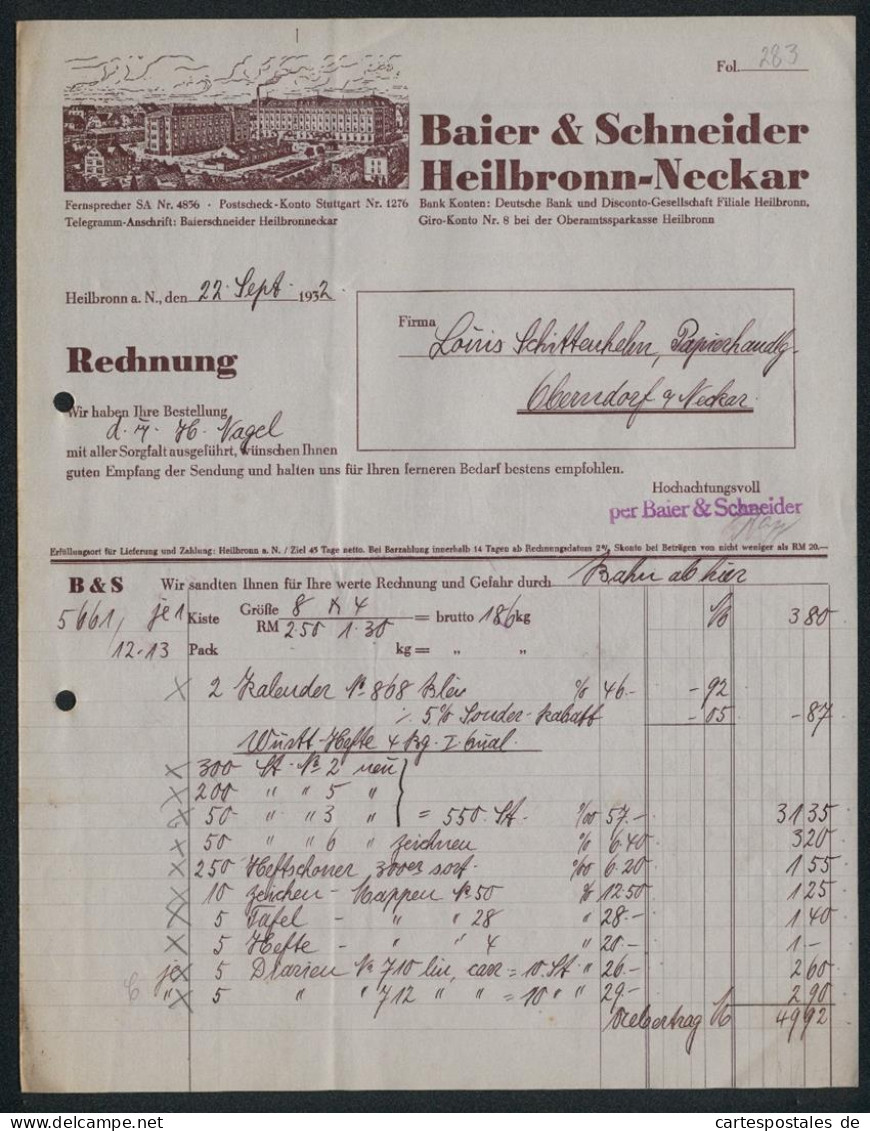 Fol. 283
Baier & Schneider
Heilbronn-Neckar
Fernsprecher SA Nr. 4856 · Postscheck-Konto Stuttgart Nr. 1276
Telegramm-Anschrift: Baierschneider Heilbronneckar
Bank Konten: Deutsche Bank und Disconto-Gesellschaft Filiale Heilbronn,
Giro-Konto Nr. 8 bei der Oberamtssparkasse Heilbronn
Heilbronn a. N., den 22. Sept. 1932
Firma Louis Schittenhelm, Papierhandlg.
Oberndorf a Neckar.
Rechnung
Wir haben Ihre Bestellung
d. H. Nagel
mit aller Sorgfalt ausgeführt, wünschen Ihnen
guten Empfang der Sendung und halten uns für Ihren ferneren Bedarf bestens empfohlen.
Hochachtungsvoll
per Baier & Schneider
Erfüllungsort für Lieferung und Zahlung: Heilbronn a. N. / Ziel 45 Tage netto. Bei Barzahlung innerhalb 14 Tagen ab Rechnungsdatum 2% Skonto bei Beträgen von nicht weniger als RM 20.—
B & S Wir sandten Ihnen für Ihre werte Rechnung und Gefahr durch Bahn ab hier
5661, je 1 Kiste Größe 8 x 4 = brutto 186 kg 3 80
RM 2.50 1.30
12-13 Pack kg = „ „
2 Kalender No 868 Blei % 46.- - 92
·/· 5% Sonder-Rabatt - 05 - 87
Württ. Hefte 4 kg. I. Qual.
300 St. No 2 neu
200 " " 5 "
50 " " 3 " = 550 St. %0 57.- 31 35
50 " " 6 " zeichnen % 6.40 3 20
250 Heftschoner 300er sort. %0 6.20 1 55
10 Zeichen-Mappen No 50 % 12.50 1 25
5 Tafel - " " 28 " 28.- 1 40
5 Hefte - " " 4 " 20.- 1 -
je 5 Diarien No 710 lin, carr = 10 St. " 26.- 2 60
" 5 " " 712 " " = 10 " " 29.- 2 90
Uebertrag 49 92
cartespostales de